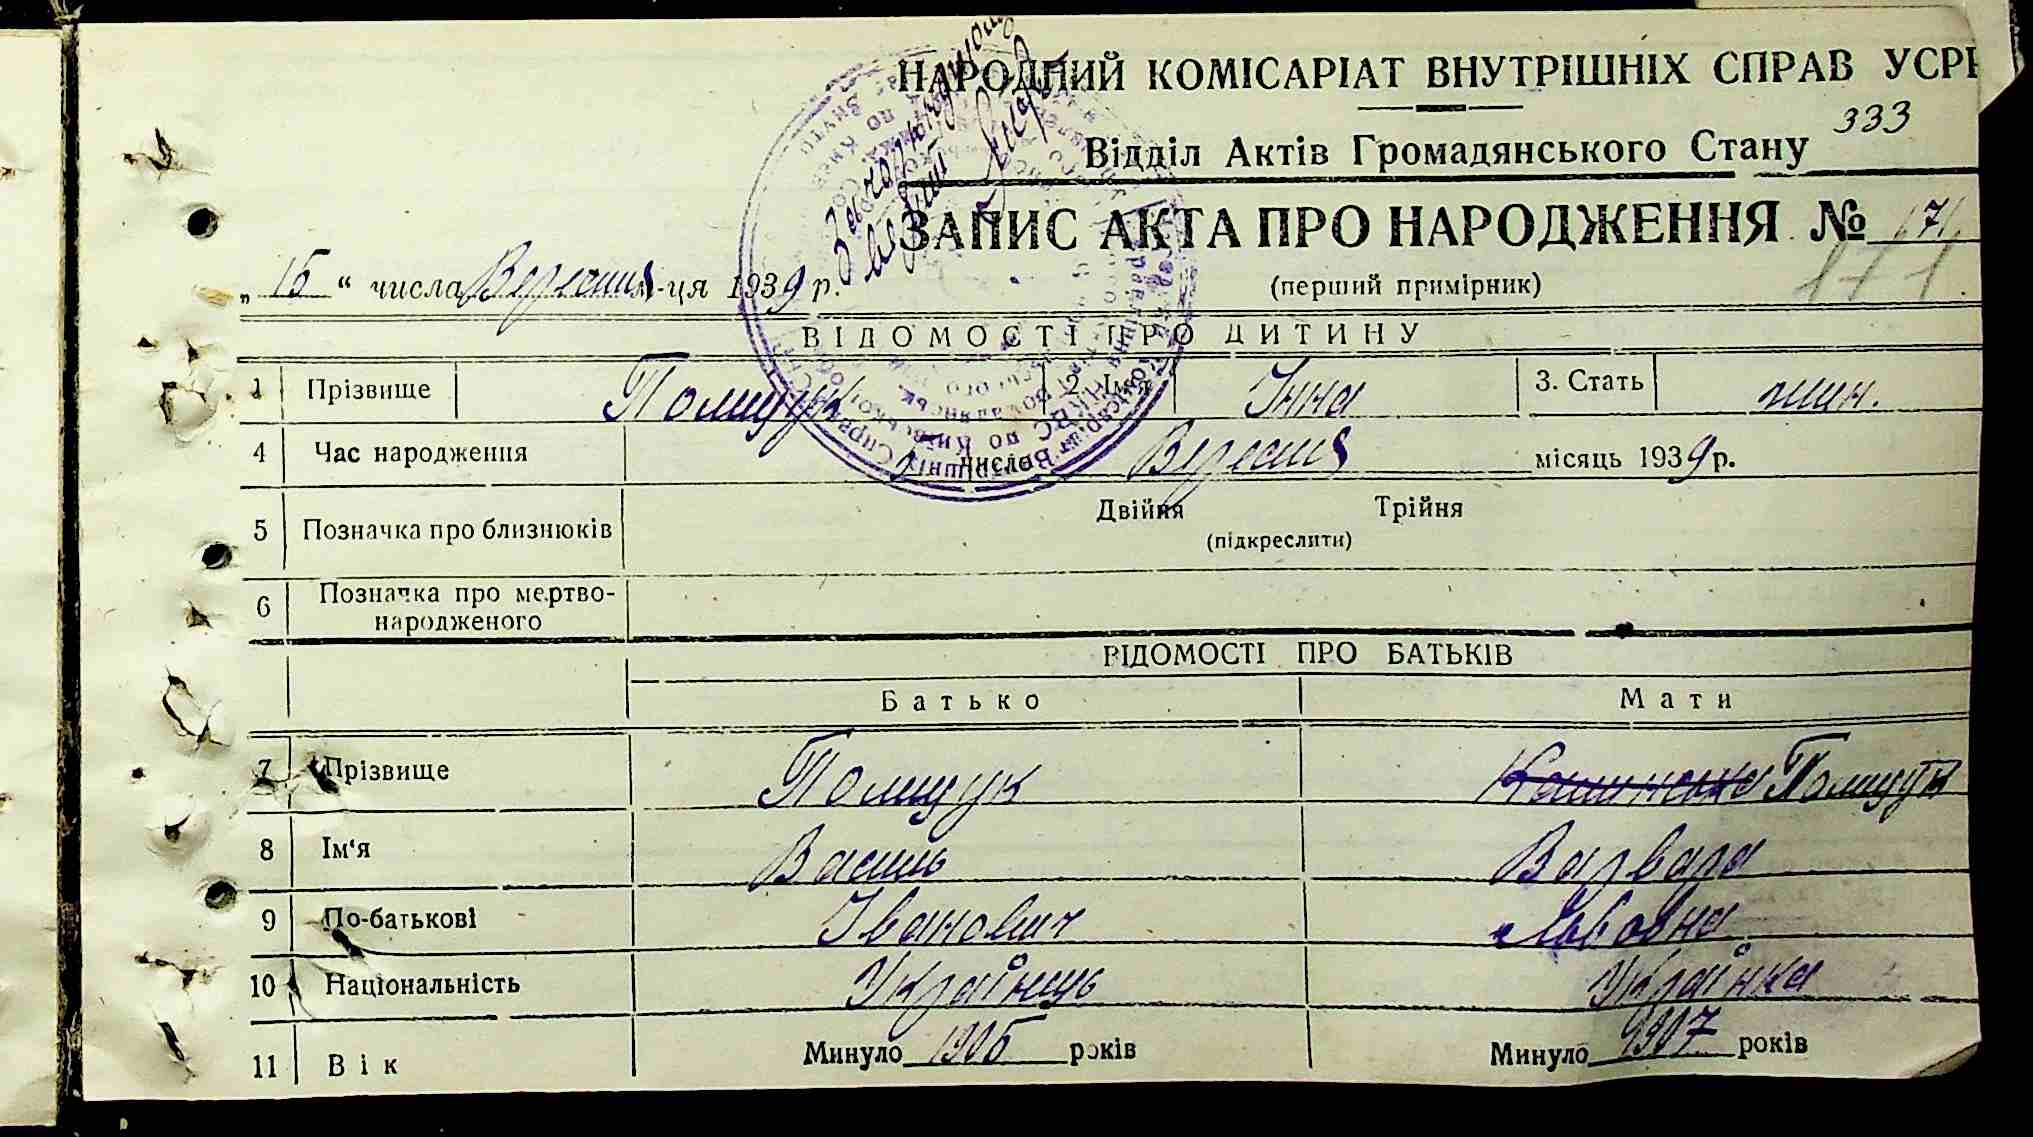 НАРОДНИЙ КОМІСАРІАТ ВНУТРІШНІХ СПРАВ УСРР
333
Відділ Актів Громадянського Стану
ЗАПИС АКТА ПРО НАРОДЖЕННЯ № 171
(перший примірник)
171
„ 15 “ числа Вересня м-ця 1939 р.
ВІДОМОСТІ ПРО ДИТИНУ
1 Прізвище Полищук 2. Ім'я Інна 3. Стать жин.
4 Час народження числа Вересня місяць 1939 р.
5 Позначка про близнюків Двійня Трійня
(підкреслити)
6 Позначка про мертво-
народженого
ВІДОМОСТІ ПРО БАТЬКІВ
Батько Мати
7 Прізвище Полищук Полищук
8 Ім'я Василь Варвара
9 По-батькові Іванович Львовна
10 Національність Українець Українка
11 Вік Минуло 1905 років Минуло 1907 років